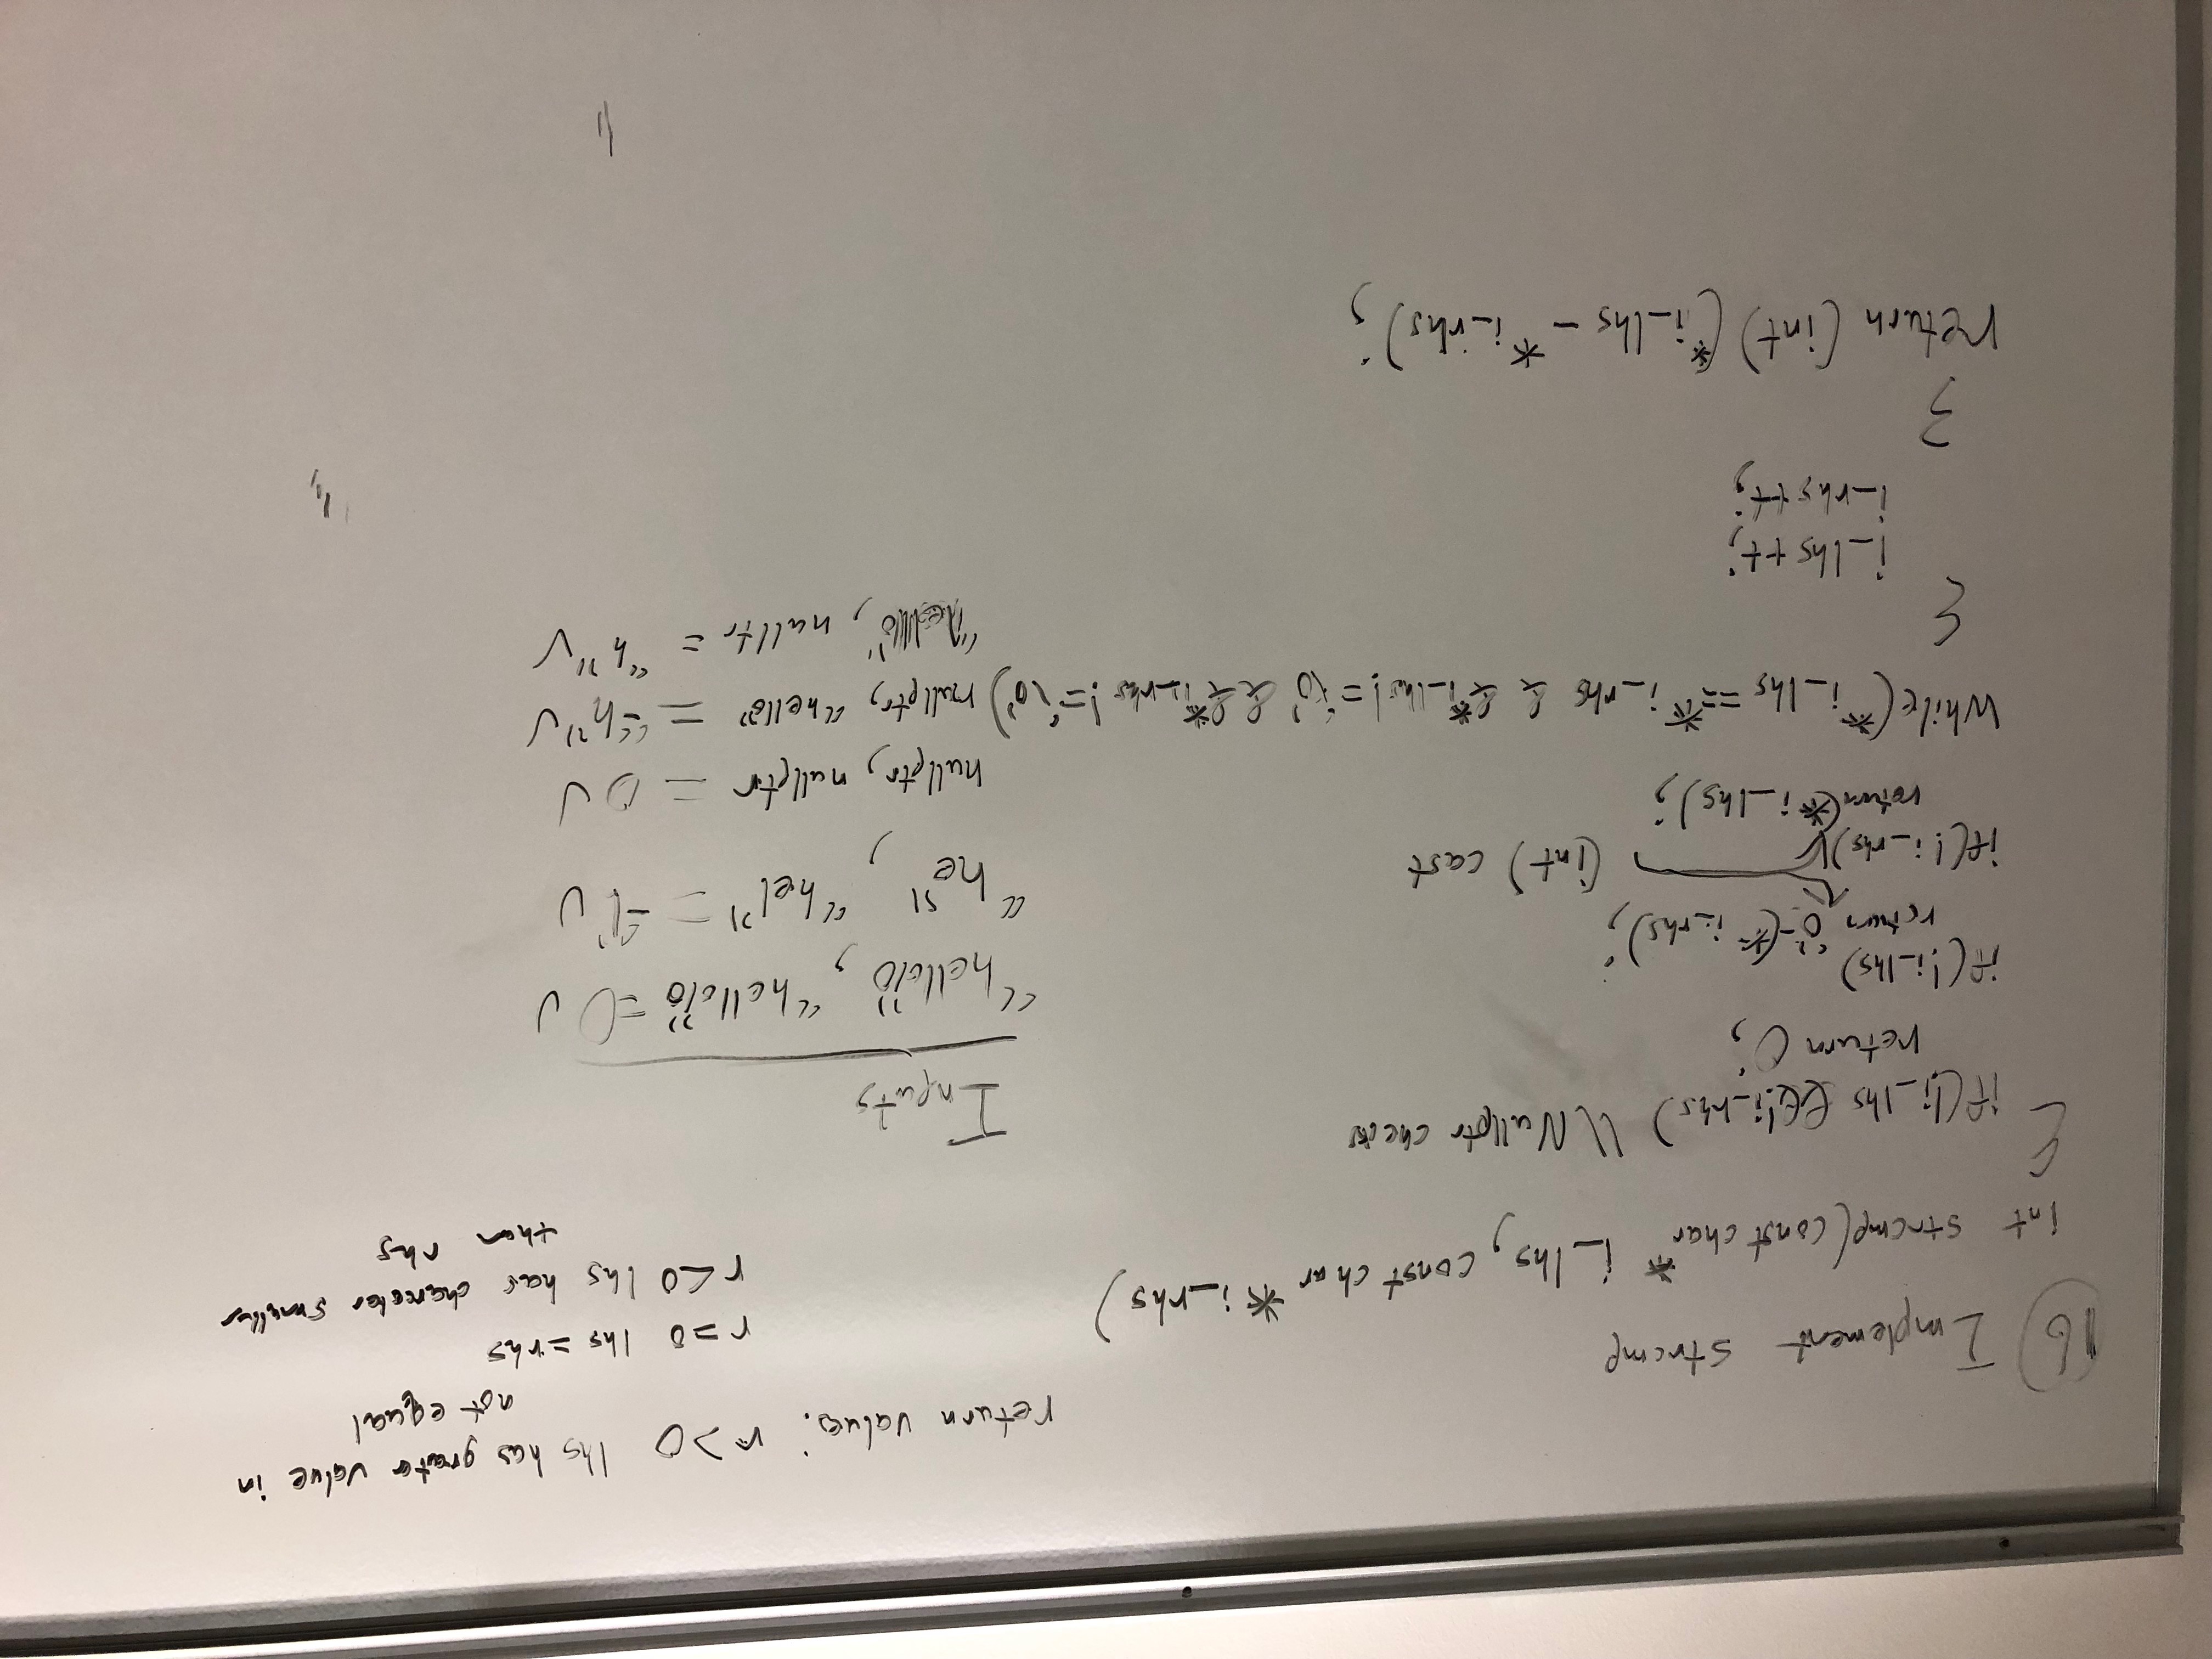 16 Implement strcmp
int strcmp(const char* i_lhs, const char *i_rhs)
{
if(!i_lhs &&!i_rhs) \\Nullptr check
return 0;
if(!i_lhs)
return '0'-(* i_rhs);
if(!i_rhs)
(int) cast
return(*i_lhs);
While(*i_lhs ==*i_rhs & &*i_lhs!='\0' &&*i_rhs !='\0')
{
i_lhs++;
i_rhs++;
}
return (int) (*i_lhs - *i_rhs);
return values: r>0 lhs has greater value in
not equal
r=0 lhs =rhs
r<0 lhs has character smaller
than rhs
Inputs
"hello\0", "hello\0" =0 ✓
"he", "hel" = -'l' ✓
nullptr, nullptr = 0 ✓
nullptr, "hello" = "-h" ✓
"hello", nulltr = "h" ✓